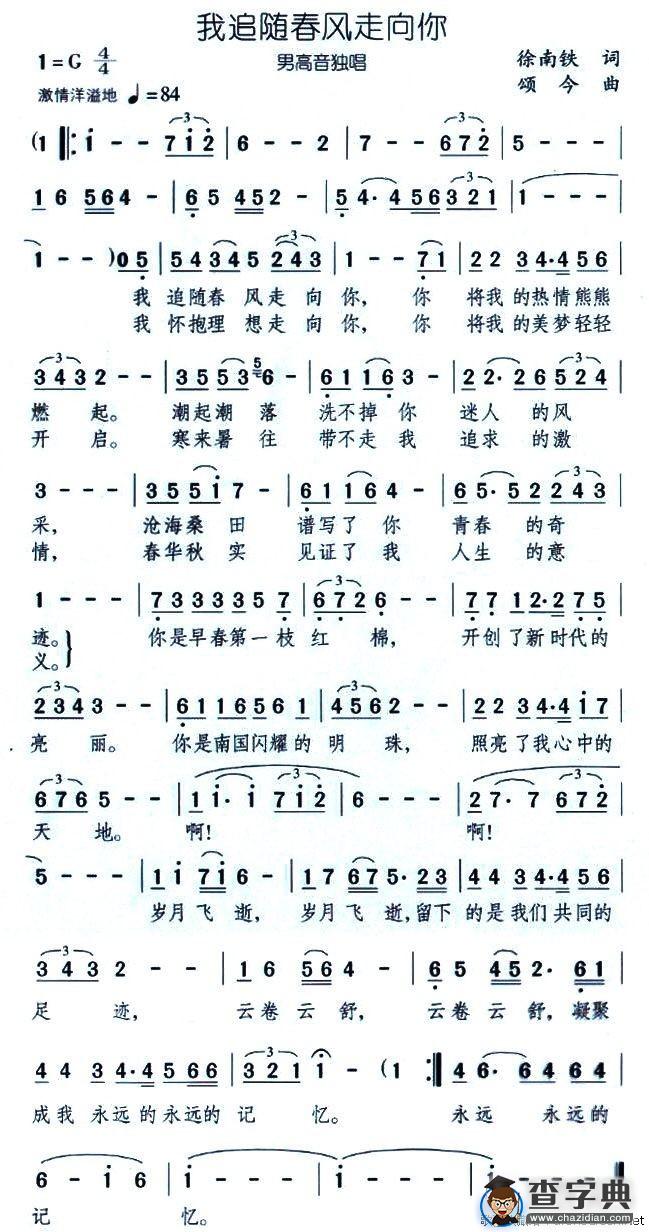 我追随春风走向你
1=G 4/4
男高音独唱
徐南铁 词
激情洋溢地 ♩=84
颂今 曲
(1 ‖: i - - 7 i 2 | 6 - - 2 | 7 - - 6 7 2 | 5 - - -
1 6 5 6 4 - | 6 5 4 5 2 - | 5 4· 4 5 6 3 2 1 | 1 - - -
1 - - ) 0 5 | 5 4 3 4 5 2 4 3 | 1 - - 7 1 | 2 2 3 4·4 5 6
我 追随春 风走 向 你, 你 将我 的热情熊熊
我 怀抱理 想走 向 你, 你 将我 的美梦轻轻
3 4 3 2 - - | 3 5 5 3 5 6 - | 6 1 1 6 3 - | 2 2· 2 6 5 2 4
燃 起。 潮起潮 落 洗不掉 你 迷人 的风
开 启。 寒来暑 往 带不走 我 追求 的激
3 - - - | 3 5 5 i 7 - | 6 1 1 6 4 - | 6 5· 5 2 2 4 3
采, 沧海桑 田 谱写了 你 青春 的奇
情, 春华秋 实 见证了 我 人生 的意
1 - - - | 7 3 3 3 3 5 7 | 6 7 2 6 - - | 7 7 1 2·2 7 5
迹。 你是早春第一枝 红 棉, 开创了新时代的
义。
2 3 4 3 - - | 6 1 1 6 5 6 1 | 4 5 6 2 - - | 2 2 3 4·4 i 7
亮 丽。 你是南国闪耀的 明 珠, 照亮了我心中的
6 7 6 5 - - | 1 i· i 7 i 2 | 6 - - - | 2 7· 7 6 7 2
天 地。 啊! 啊!
5 - - - | 1 i 7 i 6 - | 1 7 6 7 5·2 3 | 4 4 3 4·4 5 6
岁月飞 逝, 岁月飞 逝,留下 的是我们共同的
3 4 3 2 - - | 1 6 5 6 4 - | 6 5 4 5 2· 6 1
足 迹, 云卷云 舒, 云卷云 舒,凝聚
4 4 3 4·4 5 6 6 | 3 2 1 1 - (1 :‖ 4 6· 6 4 6 4
成我 永远的永远的 记 忆。 永远 永远的
6 - i 6 | i - - - | i - - - ‖
记 忆。
查字典
www.chazidian.com